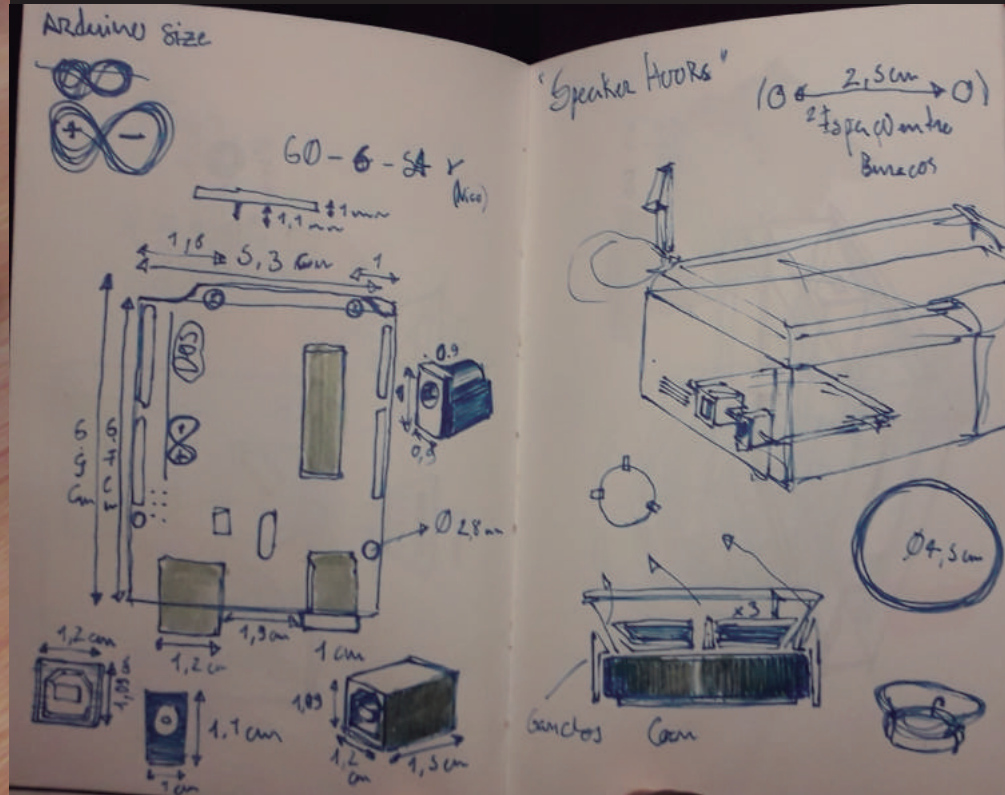 Arduino Size
+ -
60 - 6 - 54
(Nico)
1 mm
1,1 mm
1,8
5,3 cm
1
0.9
0,9
Ø 2,8 mm
1,9 cm
1,2 cm
1 cm
1,2 cm
1,09
1,1 cm
1 cm
1,09
1,2 cm
1,5 cm
"Speaker Hooks"
2,5 cm
Espaço entre
Buracos
Ø4,5 cm
x3
Ganchos